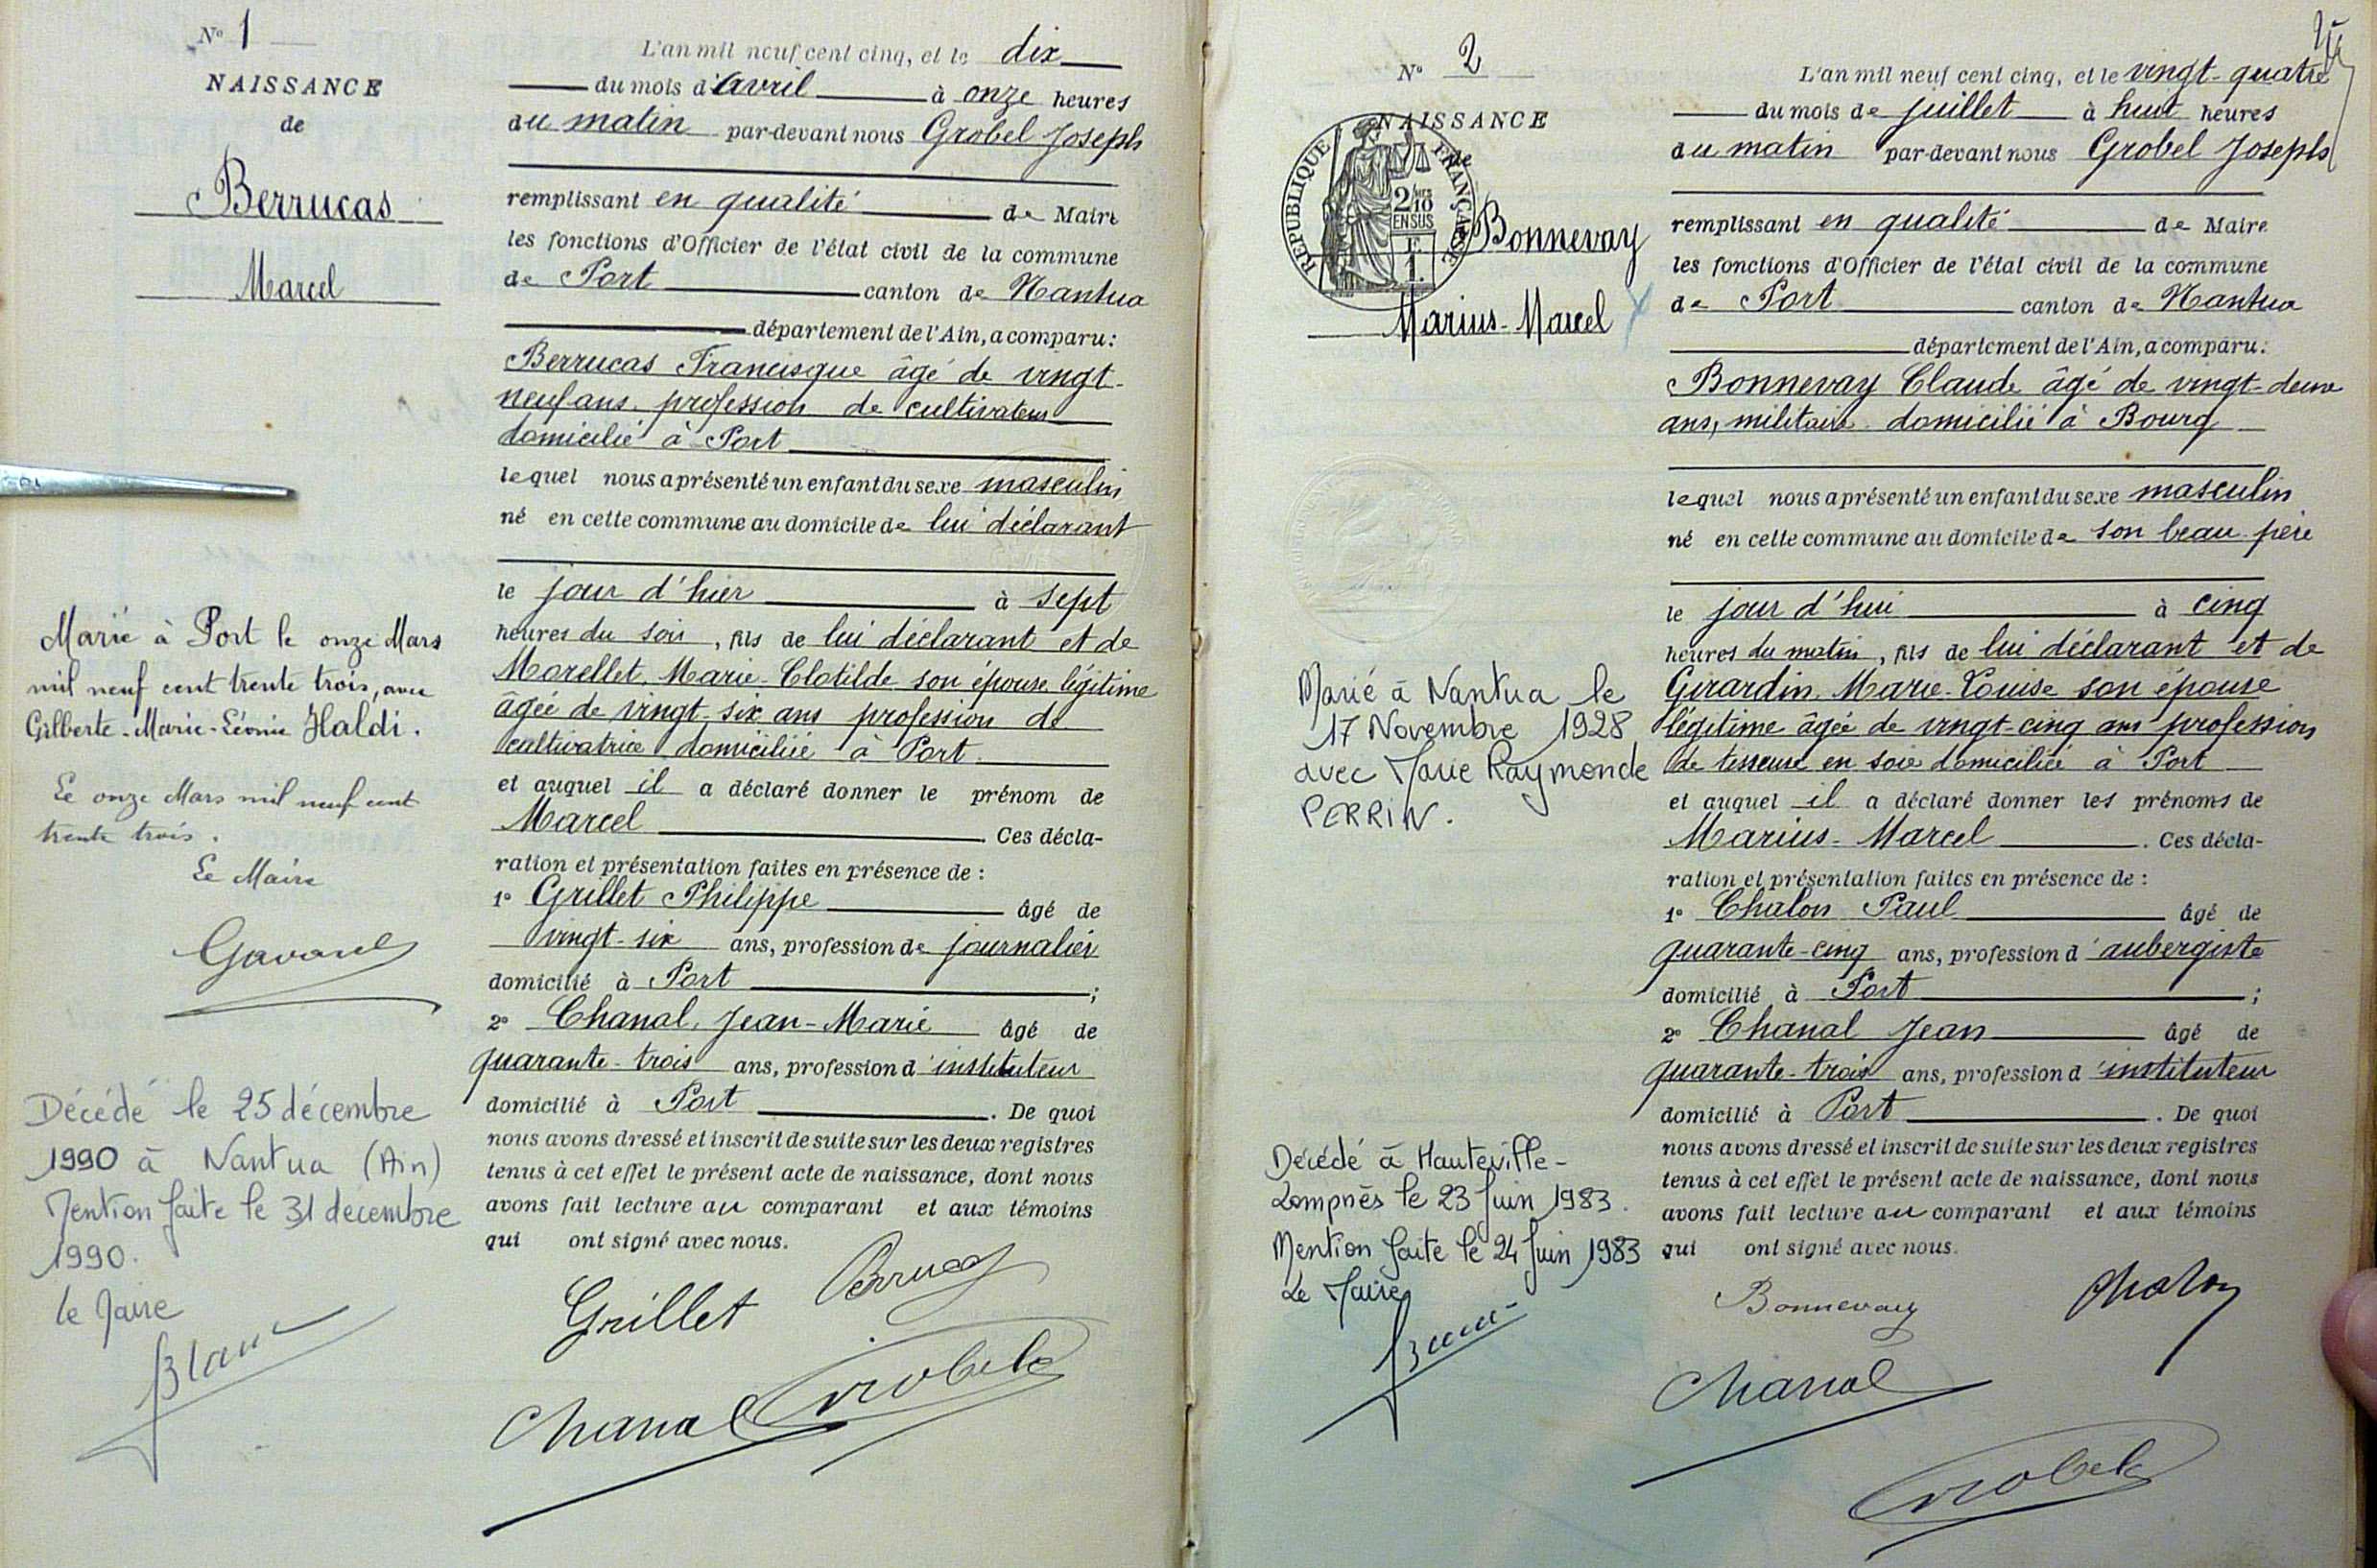 N° 1
NAISSANCE
de
Berrucas
Marcel
Marié à Port le onze Mars
mil neuf cent trente trois, avec
Gilberte-Marie-Léonie Haldi.
Le onze Mars mil neuf cent
trente trois.
Le Maire
Décédé le 25 décembre
1990 à Nantua (Ain)
Mention faite le 31 décembre
1990.
le Maire
L'an mil neuf cent cinq, et le dix
du mois d'avril à onze heures
du matin par-devant nous Grobel Joseph
remplissant en qualité de Maire
les fonctions d'Officier de l'état civil de la commune
de Port canton de Nantua
département de l'Ain, a comparu:
Berrucas Francisque âgé de vingt-
neuf ans, profession de cultivateur
domicilié à Port
lequel nous a présenté un enfant du sexe masculin
né en cette commune au domicile de lui déclarant
le jour d'hier à sept
heures du soir, fils de lui déclarant et de
Morellet, Marie-Clotilde son épouse légitime
âgée de vingt-six ans profession de
cultivatrice domiciliée à Port
et auquel il a déclaré donner le prénom de
Marcel. Ces décla-
ration et présentation faites en présence de :
1° Grillet Philippe âgé de
vingt-six ans, profession de journalier
domicilié à Port ;
2° Chanal, Jean-Marie âgé de
quarante-trois ans, profession d'instituteur
domicilié à Port. De quoi
nous avons dressé et inscrit de suite sur les deux registres
tenus à cet effet le présent acte de naissance, dont nous
avons fait lecture au comparant et aux témoins
qui ont signé avec nous.
Grillet Berrucas
Chanal Grobel
N° 2
NAISSANCE
de
RÉPUBLIQUE FRANÇAISE
2/10 EN SUS
Bonnevay
Marius-Marcel
Marié à Nantua le
17 Novembre 1928
avec Marie Raymonde
PERRIN.
Décédé à Hauteville-
Lompnès le 23 Juin 1983.
Mention faite le 24 Juin 1983
Le Maire
L'an mil neuf cent cinq, et le vingt-quatre
du mois de juillet à huit heures
du matin par-devant nous Grobel Joseph
remplissant en qualité de Maire
les fonctions d'Officier de l'état civil de la commune
de Port canton de Nantua
département de l'Ain, a comparu:
Bonnevay Claude âgé de vingt-deux
ans, militaire domicilié à Bourg
lequel nous a présenté un enfant du sexe masculin
né en cette commune au domicile de son beau-père
le jour d'hui à cinq
heures du matin, fils de lui déclarant et de
Girardin, Marie-Louise son épouse
légitime âgée de vingt-cinq ans profession
de tisseuse en soie domiciliée à Port
et auquel il a déclaré donner les prénoms de
Marius-Marcel. Ces décla-
ration et présentation faites en présence de :
1° Chalon Paul âgé de
quarante-cinq ans, profession d'aubergiste
domicilié à Port ;
2° Chanal Jean âgé de
quarante-trois ans, profession d'instituteur
domicilié à Port. De quoi
nous avons dressé et inscrit de suite sur les deux registres
tenus à cet effet le présent acte de naissance, dont nous
avons fait lecture au comparant et aux témoins
qui ont signé avec nous.
Bonnevay Chalon
Chanal
Grobel